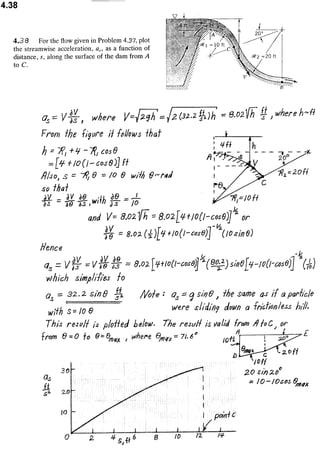 4.38
4.38 For the flow given in Problem 4.37, plot
the streamwise acceleration, aₛ, as a function of
distance, s, along the surface of the dam from A
to C.
4 ft
A
20°
ℛ₁ = 10 ft
C
ℛ₂ = 20 ft
B
aₛ = V ∂V/∂s , where V = √2gh = √2(32.2 ft/s²)h = 8.02√h ft/s , where h~ft
From the figure it follows that
h = ℛ₁ + 4 − ℛ₁ cosθ
= [4 + 10(1−cosθ)] ft
Also, s = ℛ₁θ = 10 θ with θ~rad
so that
∂V/∂s = ∂V/∂θ ∂θ/∂s , with ∂θ/∂s = 1/10
4ft
h
A
V
20°
ℛ₂=20ft
s
θ
C
ℛ₁=10ft
and V = 8.02√h = 8.02[4+10(1−cosθ)]^½ or
∂V/∂θ = 8.02 (½)[4+10(1−cosθ)]^−½ (10 sinθ)
Hence
aₛ = V ∂V/∂s = V ∂V/∂θ ∂θ/∂s = 8.02[4+10(1−cosθ)]^½ (80.2/2) sinθ[4−10(1−cosθ)]^−½ (1/10)
which simplifies to
aₛ = 32.2 sinθ ft/s²
with s = 10 θ
Note: aₛ = g sinθ , the same as if a particle
were sliding down a frictionless hill.
This result is plotted below. The result is valid from A to C, or
from θ=0 to θ=θmax , where θmax = 71.6°
A
E
10ft
20°
θmax
D
C
20ft
10ft
20 sin20°
= 10−10cosθmax
aₛ
ft/s²
30
20
10
0
point C
0 2 4 6 8 10 12 14
s, ft